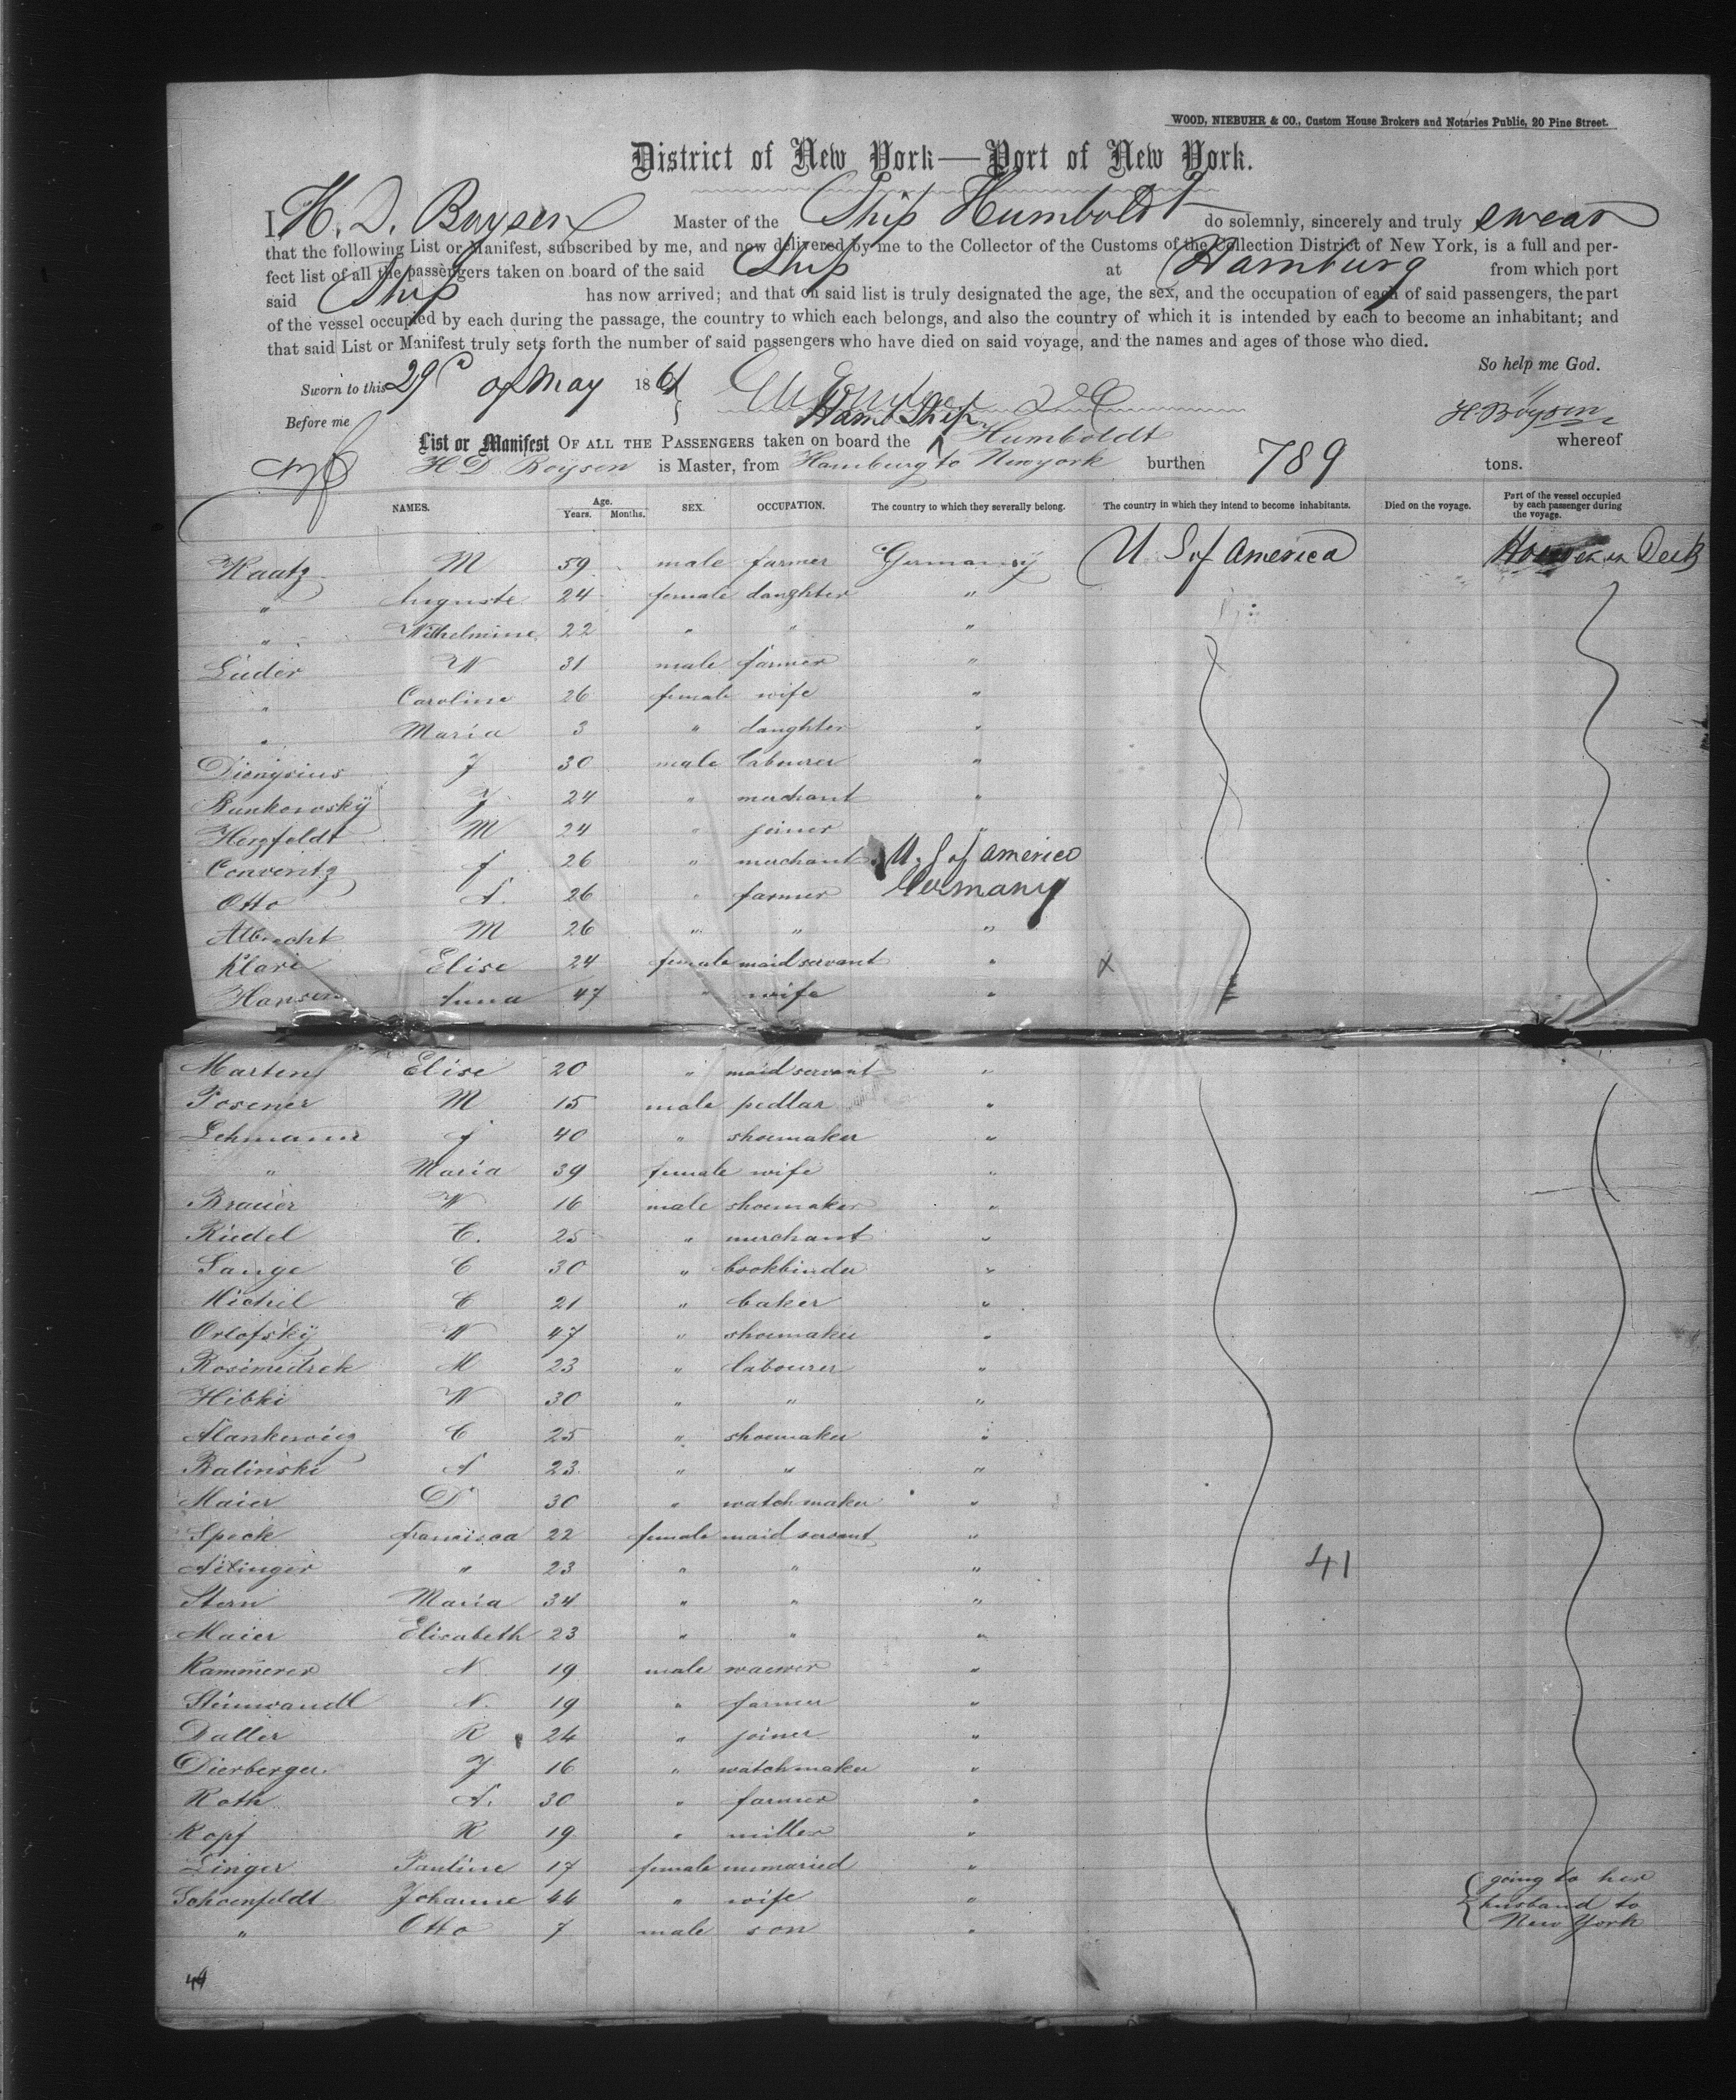 WOOD, NIEBUHR & CO., Custom House Brokers and Notaries Public, 20 Pine Street.
District of New York—Port of New York.
I, H. D. Boysen Master of the Ship Humboldt do solemnly, sincerely and truly swear
that the following List or Manifest, subscribed by me, and now delivered by me to the Collector of the Customs of the Collection District of New York, is a full and per-
fect list of all the passengers taken on board of the said Ship at Hamburg from which port
said Ship has now arrived; and that on said list is truly designated the age, the sex, and the occupation of each of said passengers, the part
of the vessel occupied by each during the passage, the country to which each belongs, and also the country of which it is intended by each to become an inhabitant; and
that said List or Manifest truly sets forth the number of said passengers who have died on said voyage, and the names and ages of those who died.
So help me God.
Sworn to this 29 of May 1861
H Boysen
Before me
Hamb Ship
List or Manifest OF ALL THE PASSENGERS taken on board the Humboldt whereof
H D Boysen is Master, from Hamburg to Newyork burthen 789 tons.
NAMES. Age. Years. Months. SEX. OCCUPATION. The country to which they severally belong. The country in which they intend to become inhabitants. Died on the voyage. Part of the vessel occupied by each passenger during the voyage.
Kaatz M 59 male farmer Germany U S of America Deck
" Auguste 24 female daughter "
" Wilhelmine 22 " " "
Lüder W 31 male farmer "
" Caroline 26 female wife "
" Maria 3 " daughter "
Dionysius J 30 male labourer "
Bunkowsky J 24 " merchant "
Herzfeldt M 24 " joiner "
Conventz f 26 " merchant U. S of America
Otto A. 26 " farmer Germany
Albrecht M 26 " " "
Klari Elise 24 female maid servant " x
Hansen Anna 47 " wife "
Martens Elise 20 " maid servant "
Posener M 15 male pedlar "
Lehmann f 40 " shoemaker "
" Maria 39 female wife "
Brauer W 16 male shoemaker "
Riedel C. 25 " merchant "
Lange C 30 " bookbinder "
Michil C 21 " baker "
Orlofsky W 47 " shoemaker "
Rosimedrek M 23 " labourer "
Hibki W 30 " " "
Alankewicz C 25 " shoemaker "
Balinski A 23 " " "
Maier D 30 " watchmaker "
Speck Francisca 22 female maid servant "
Ailinger " 23 " " " 41
Stern Maria 34 " " "
Maier Elisabeth 23 " " "
Kammerer N 19 male waewer "
Steinwandl N. 19 " farmer "
Daller R 24 " joiner "
Dierberger J 16 " watchmaker "
Roth A. 30 " farmer "
Kopf R 19 " miller "
Linger Pauline 17 female unmaried "
Schoenfeldt Johanne 44 " wife " going to her husband to New York
" Otto 7 male son "